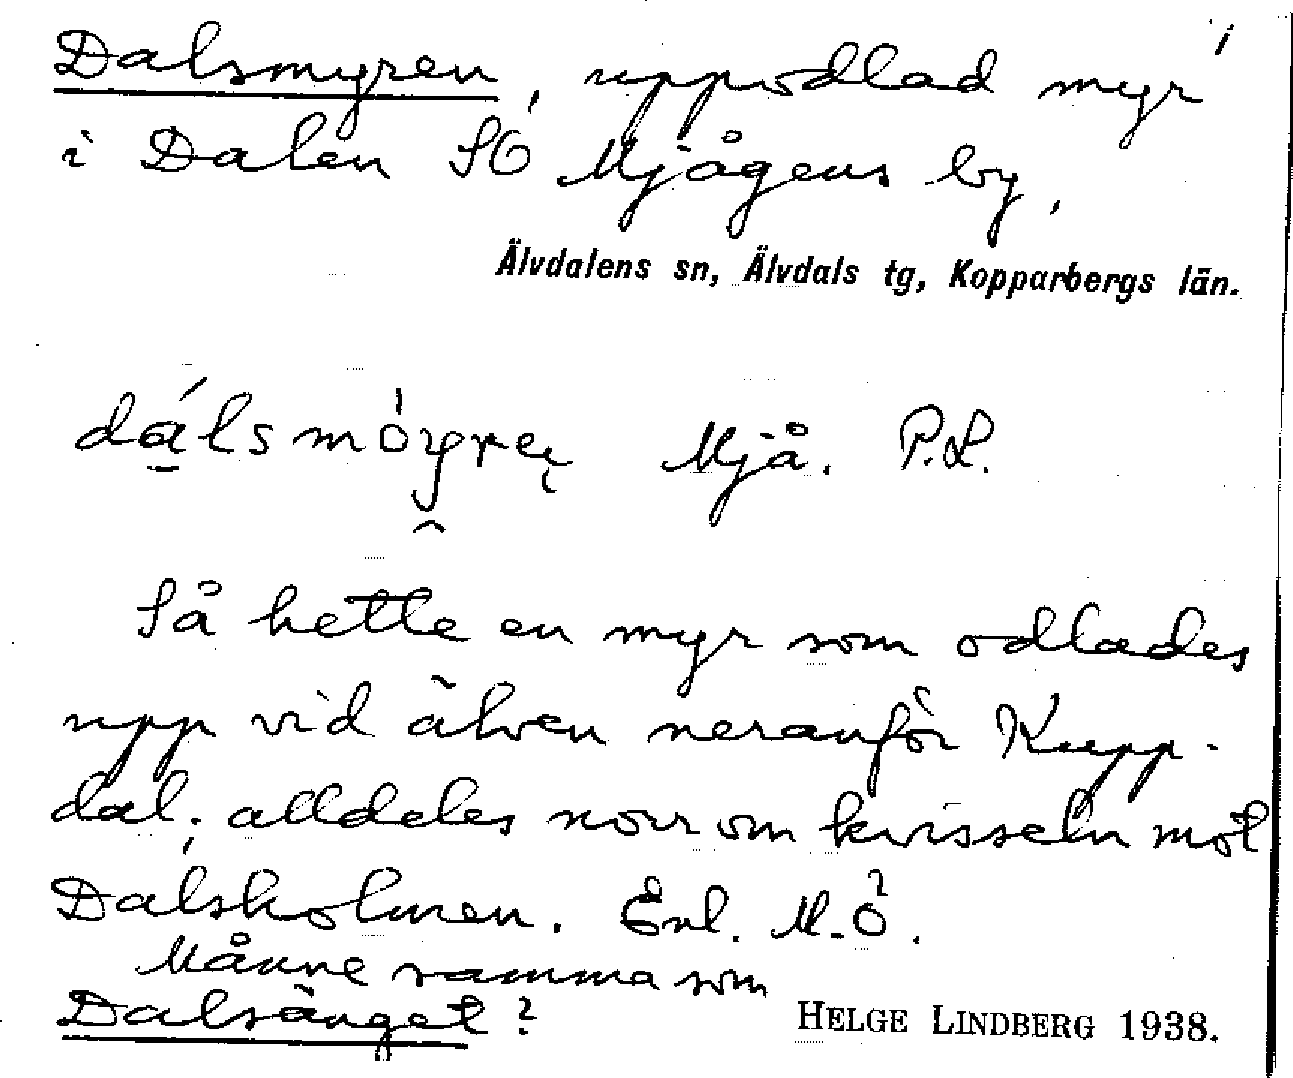 Dalsmyren, uppodlad myr
i Dalen SÖ Mjågens by,
Älvdalens sn, Älvdals tg, Kopparbergs län.
Mjå. P.L.
Så hette en myr som odlades
upp vid älven neranför Kupp-
dal; alldeles norr om kvisseln mot
Dalsholmen. Enl. M-Ö.
Månne samma som
Dalsänget?
HELGE LINDBERG 1938.